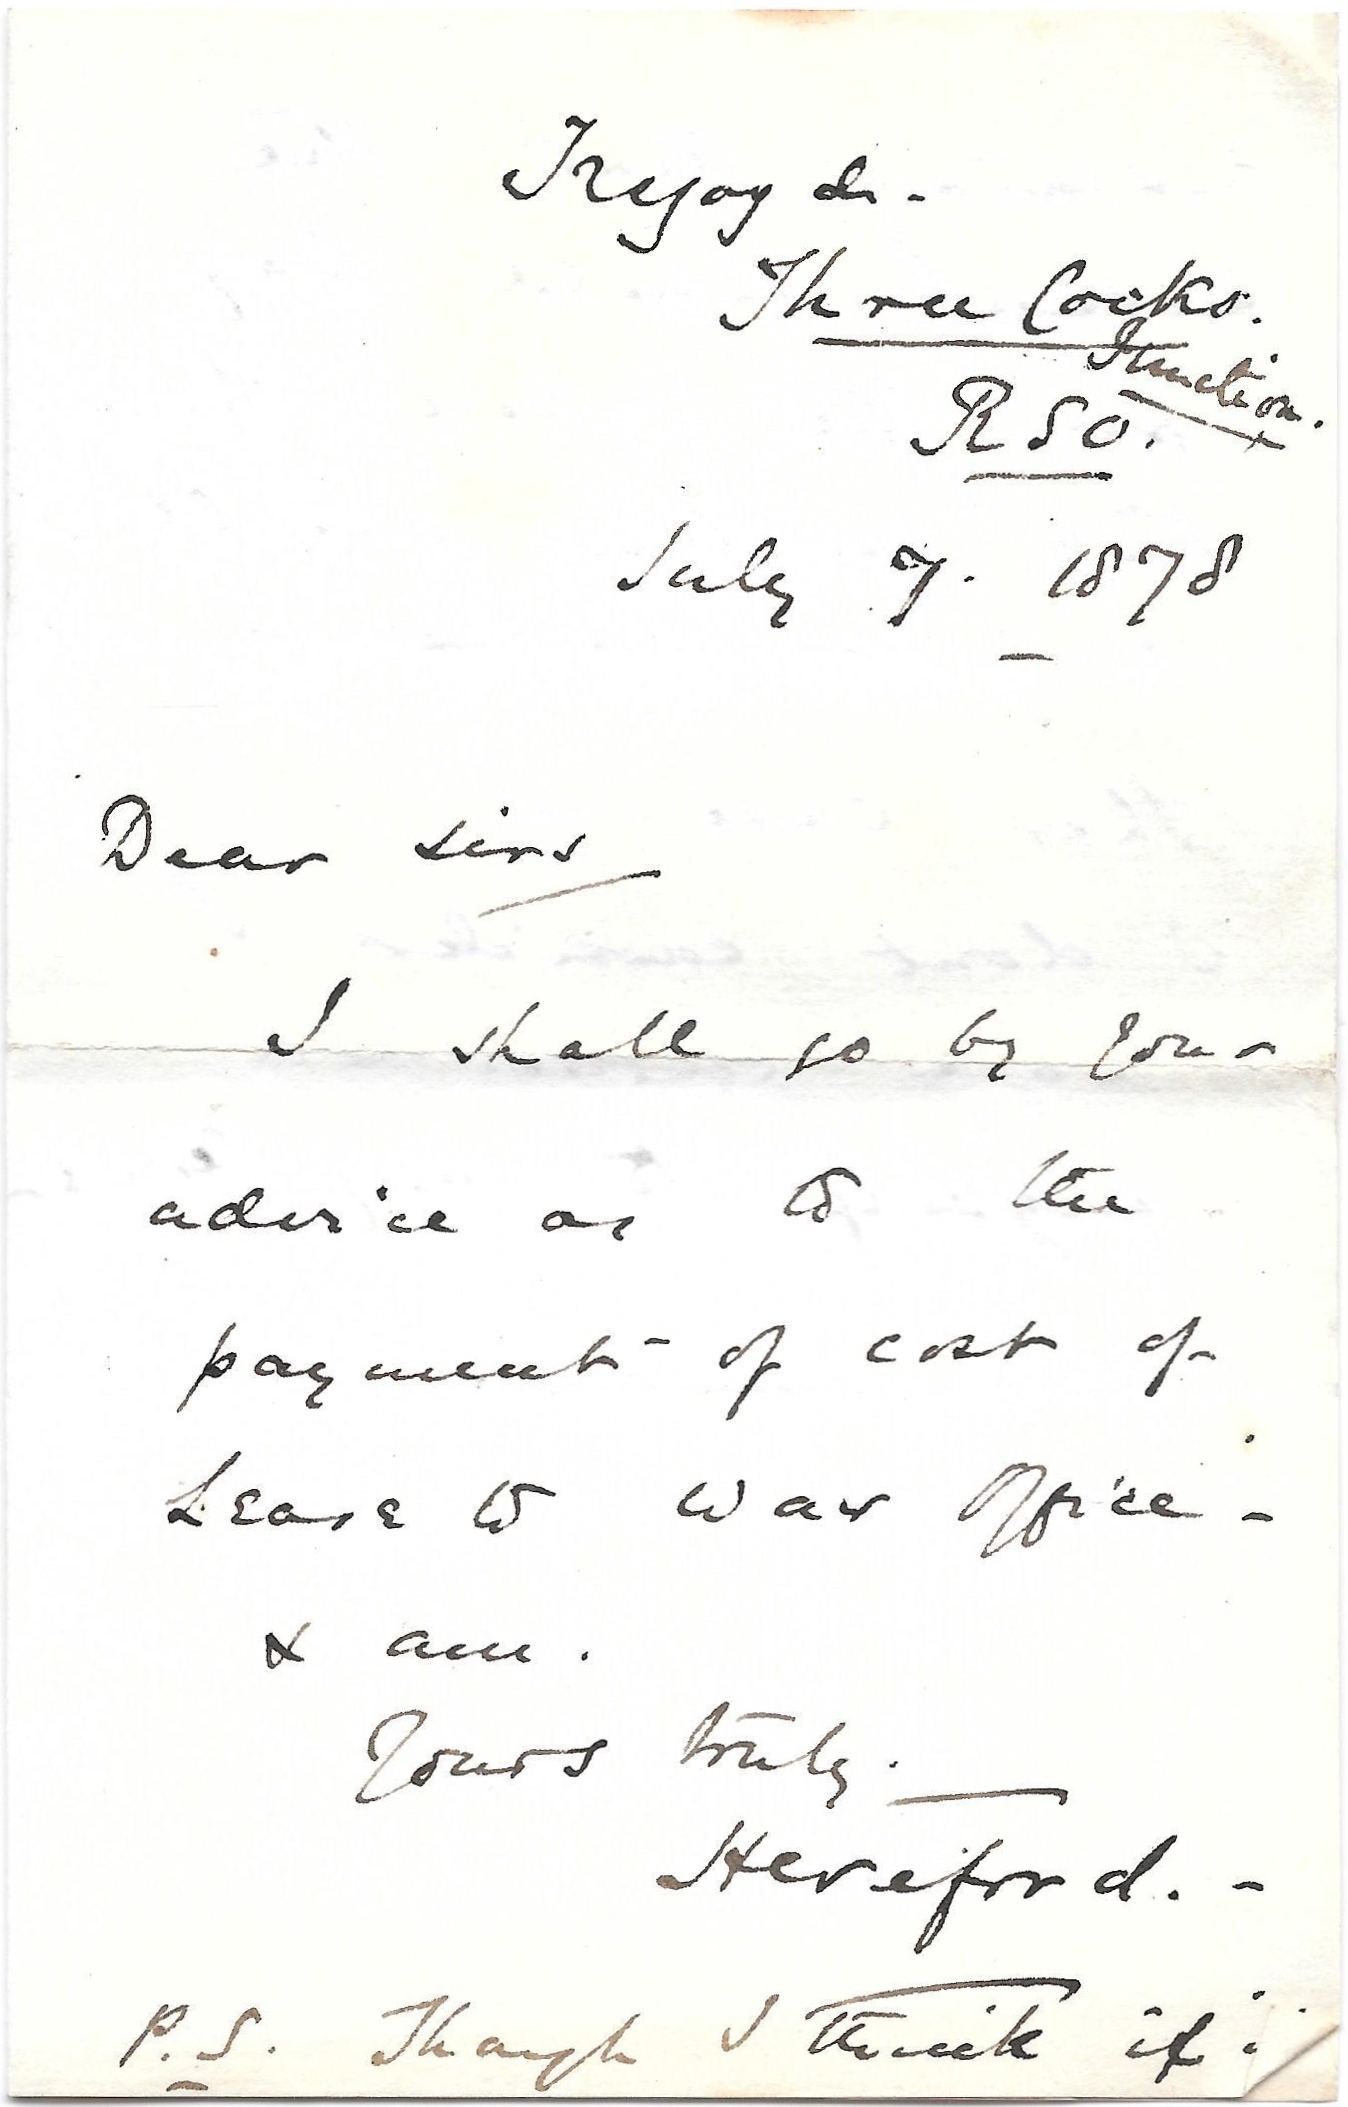 Tregoyd.
Three Cocks.
Junction.
RSO.
July 7. 1878
Dear Sirs
I shall go by your
advice as to the
payment of cost of
Lease to War Office -
& am.
Yours truly.
Hereford. -
P.S. Though I think if